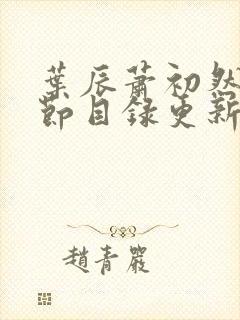 葉辰蕭初然
節目錄更新
趙青嚴